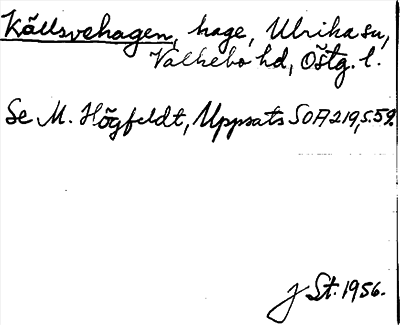 Källsvehagen, hage, Ulrika sn,
Valkebo hd, Östg. l.
Se M. Högfeldt, Uppsats SOA 219, s. 59.
J St. 1956.